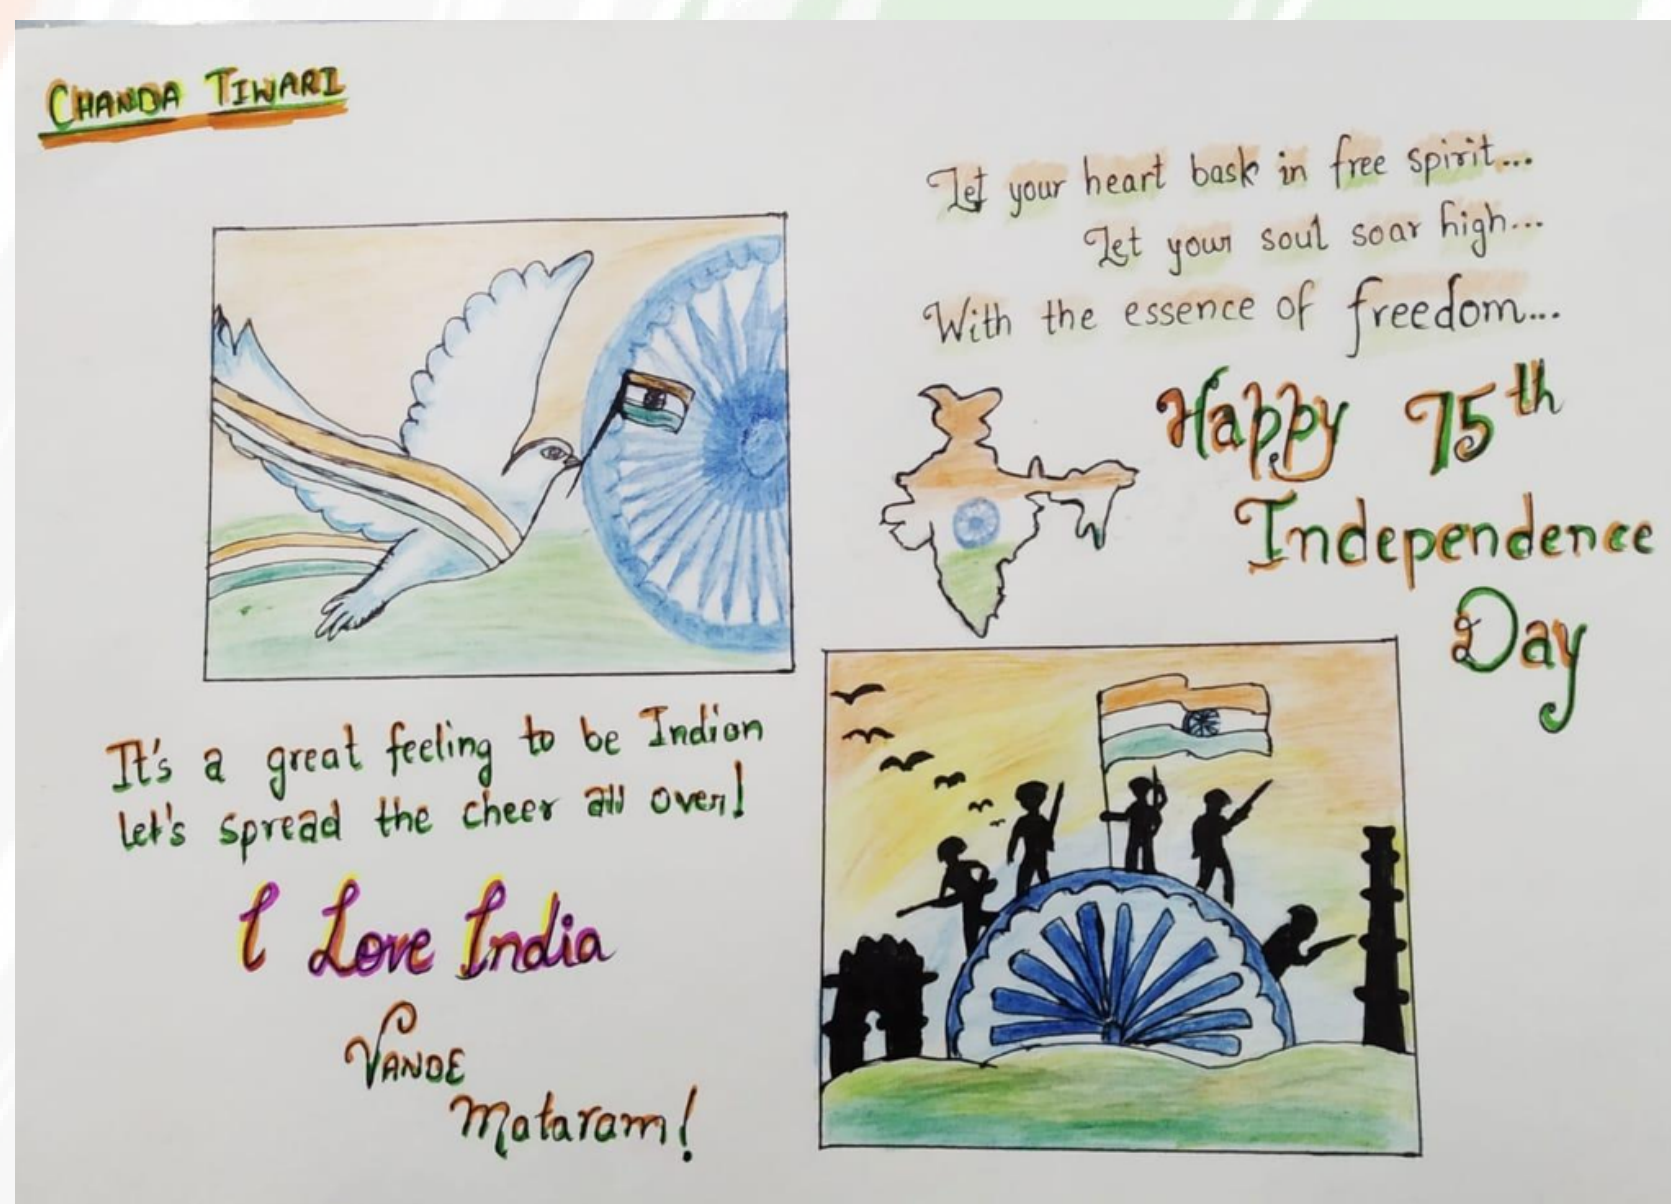 CHANDA TIWARI
Let your heart bask in free spirit...
Let your soul soar high...
With the essence of freedom...
Happy 75th
Independence
Day
It's a great feeling to be Indian
let's spread the cheer all over!
I Love India
VANDE
Mataram!